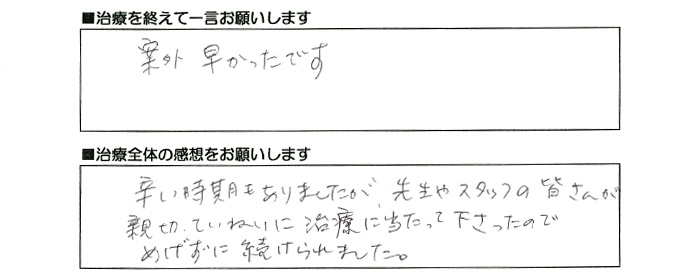 ■治療を終えて一言お願いします
案外 早かったです
■治療全体の感想をお願いします
辛い時期もありましたが、先生やスタッフの皆さんが
親切、ていねいに治療に当たって下さったので
めげずに続けられました。